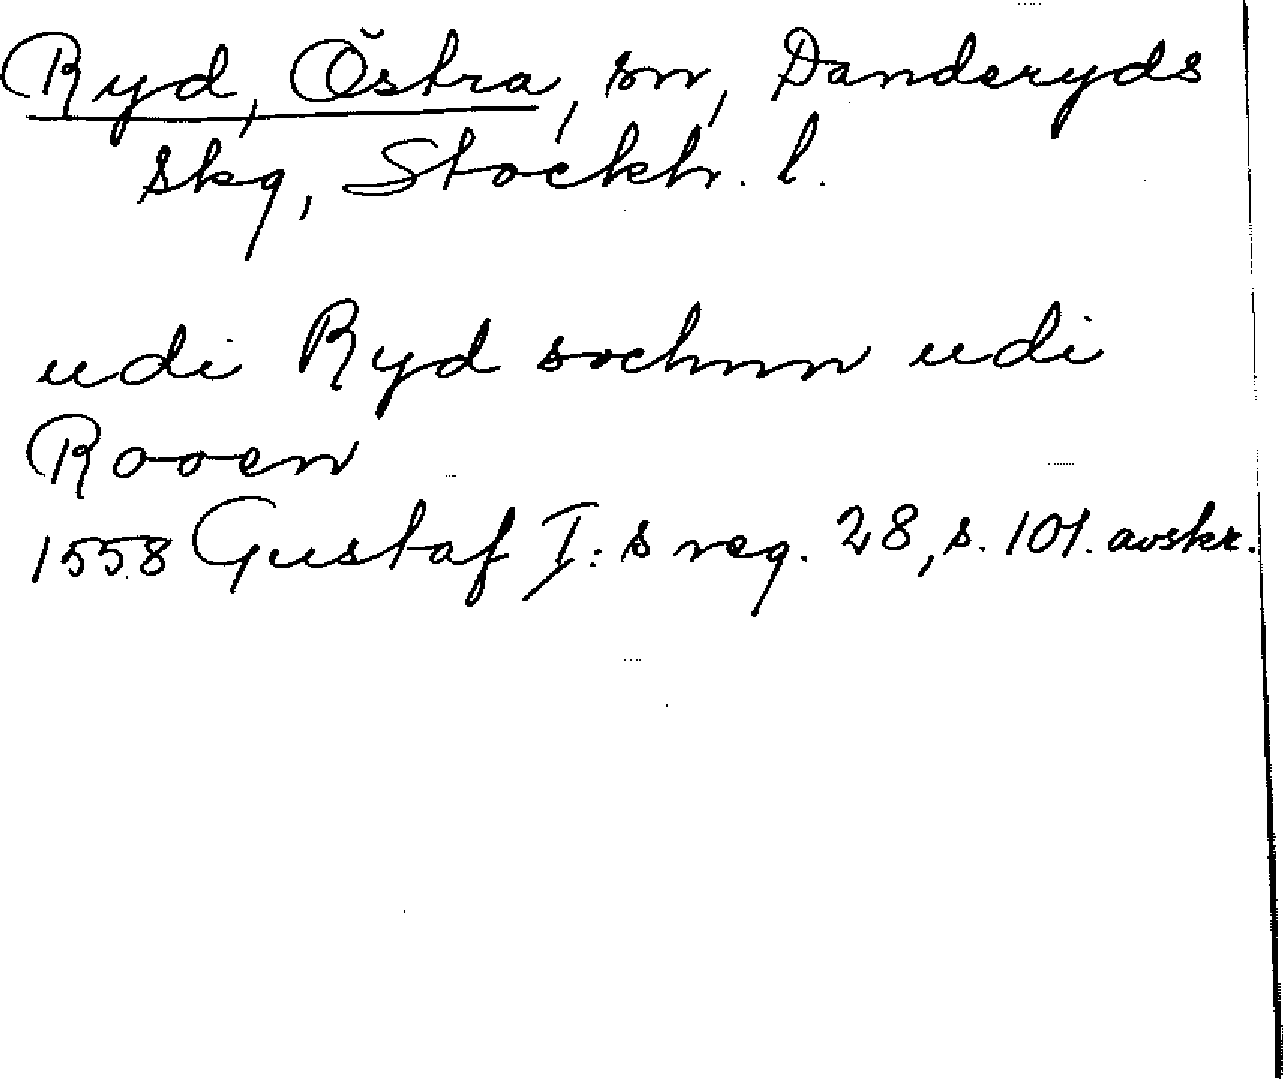 Ryd, Östra, sn, Danderyds
skg, Stockh. l.
udi Ryd sochnn udi
Rooen
1558 Gustaf I:s reg. 28, s. 101. avskr.